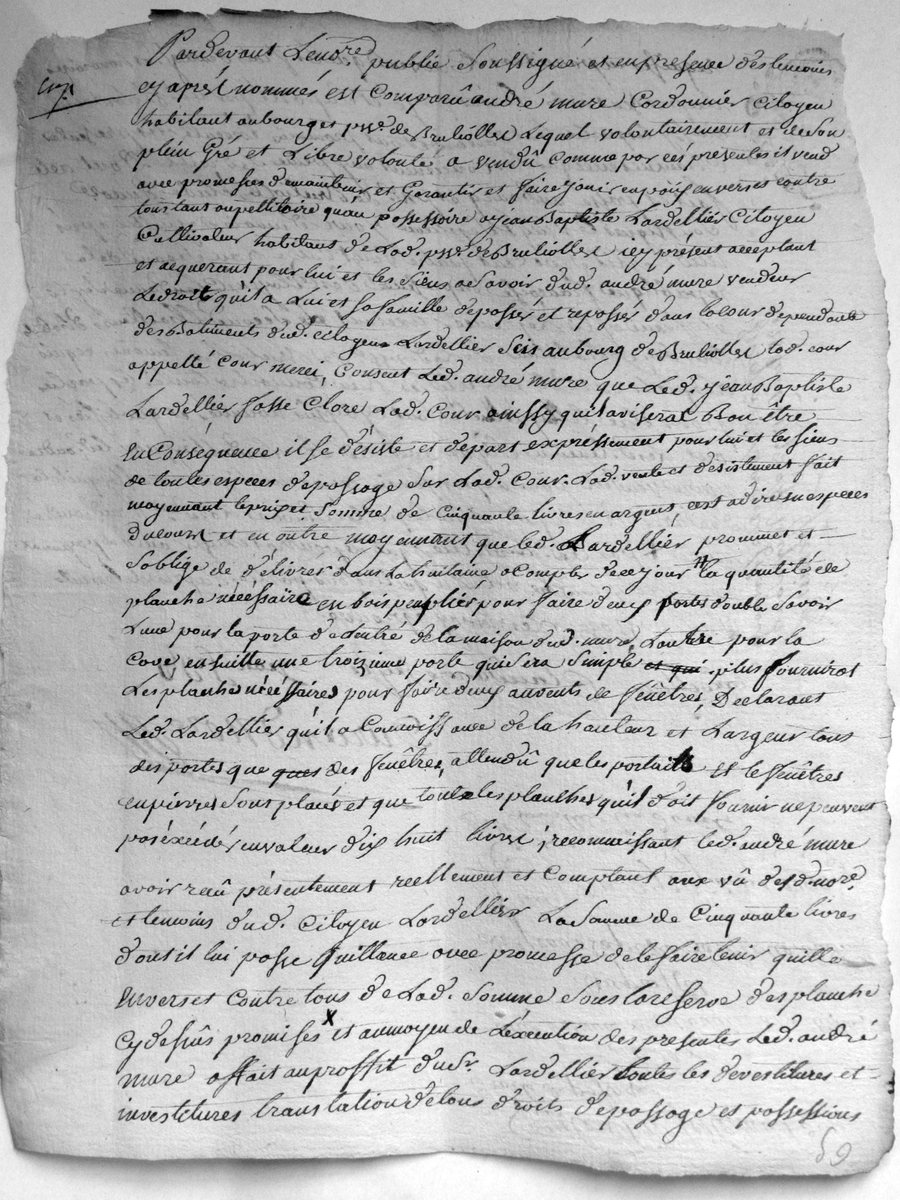 Pardevant Lenore publie Soussigné et en presence des temoins
cy aprèt nommés est Comparû andré mure Cordonnier Citoyen
habilant au bourg et psse. de Brulliolles Lequel volontairement et de son
plein Gré et Libre volonté a vendû comme par ces présentes il vend
avec promesses de maintenir et Garantir et faire jouir en paix envers et contre
tous tant au pettitoire qu'au possessoire a jean Baptiste Lardellier Citoyen
Cultivateur habitant de Lad. psse. de Brulliolles icy présent acceptant
et aequerant pour lui et les Siens a Savoir dud. andré mure vendeur
Le droit qu'il a Lui et sa famille de passér et repassér dans la cour dependante
des Batiments dud. citoyen Lardellier Scis au bourg de Brulliolles lad. cour
appellé cour merci, Consent Led. andré mure que Led. jean Baptiste
Lardellier fasse Clore Lad. Cour ainssy qu'il avisera Bon être
En Conséquence il se désiste et depart expréssement pour lui et les siens
de toutes especes de passage Sur Lad. Cour. Lad. vente et desistement fait
moyennant le prix et Somme de Cinquante livres en argent c'est a dire en especes
Ducours et en outre moyennant que led. Lardellier prommet et
S'oblige de délivrer dans La huitaine a Compter de ce jour la quantité de
planche nécéssaire en bois peuplier pour faire deux portes double Savoir
Lune pour la porte de Lentré de la maison dud. mure, Lautre pour la
Cave en suitte une troizieme porte qui Sera Simple et qui plus fournirat
Les planche nécéssaires pour faire deux auvents de fenêtres, Declarant
Led. Lardellier qu'il a Connoissance de la hauteur et Largeur tous
des portes que ques des fenêtres, attendû que les portaits et le fenêtres
en pierres Sont placés et que toutes les planches qu'il doit fournir ne peuvent
pas éxcéder en valeur dix huit livres, reconnoissant led. andré mure
avoir reçû présentement reellement et Comptant aux vû desd. nore.
et temoins dud. Citoyen Lardellier La Somme de Cinquante livres
dont il lui passe Quittance avec promesse de le faire tenir quitte
Envers et Contre tous de Lad. Somme Sous la reserve des planche
Cy dessûs promises X et au moyen de L'éxecution des presentes Led. andré
mure a fait au proffit du sr. Lardellier toutes les devestitures et
investitures translation de tous droits de passage et possessions
59